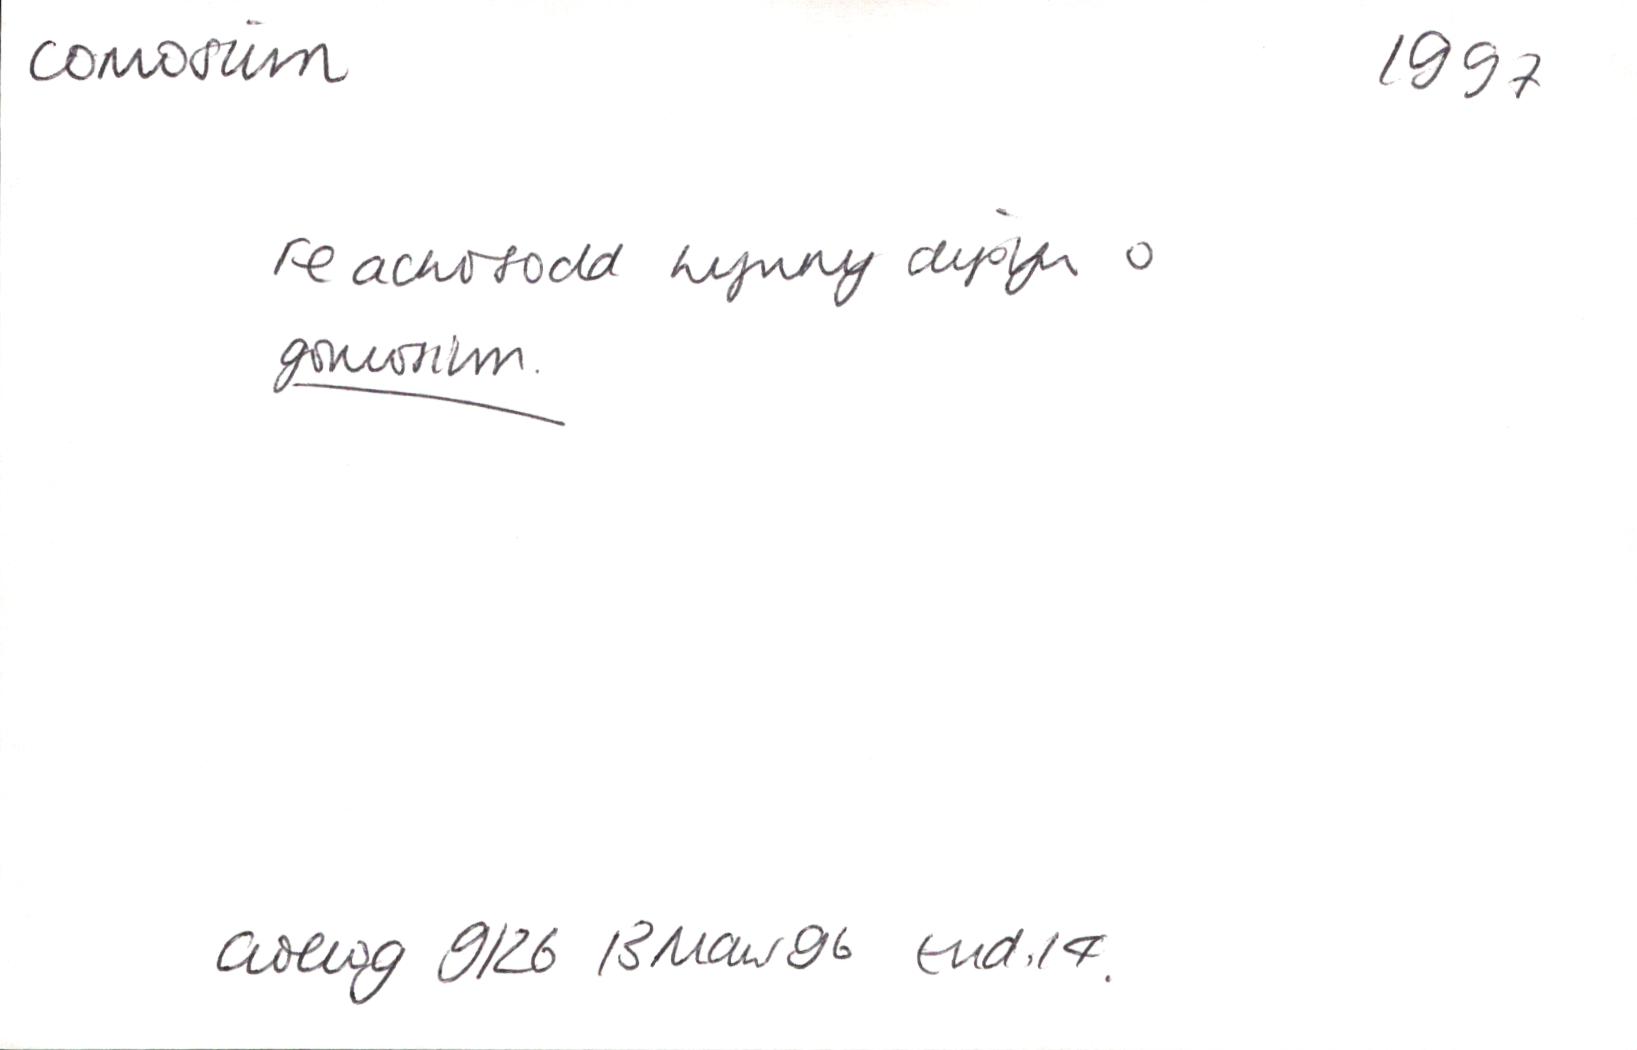 comosiwn 1997
Fe achosodd hynny dipyn o
gomosiwn.
Golwg 9/26 13 Maw 96 tud. 17.